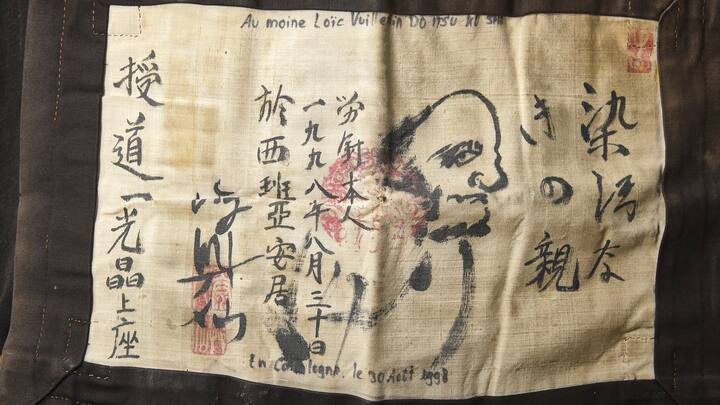 Au moine Loïc Vuillemin DO ITSU
染污な
きの親
本人
一九九八年八月三十日
於西班亞安居
授道一光晶上座
En Catalogne. le 30 Août 1998